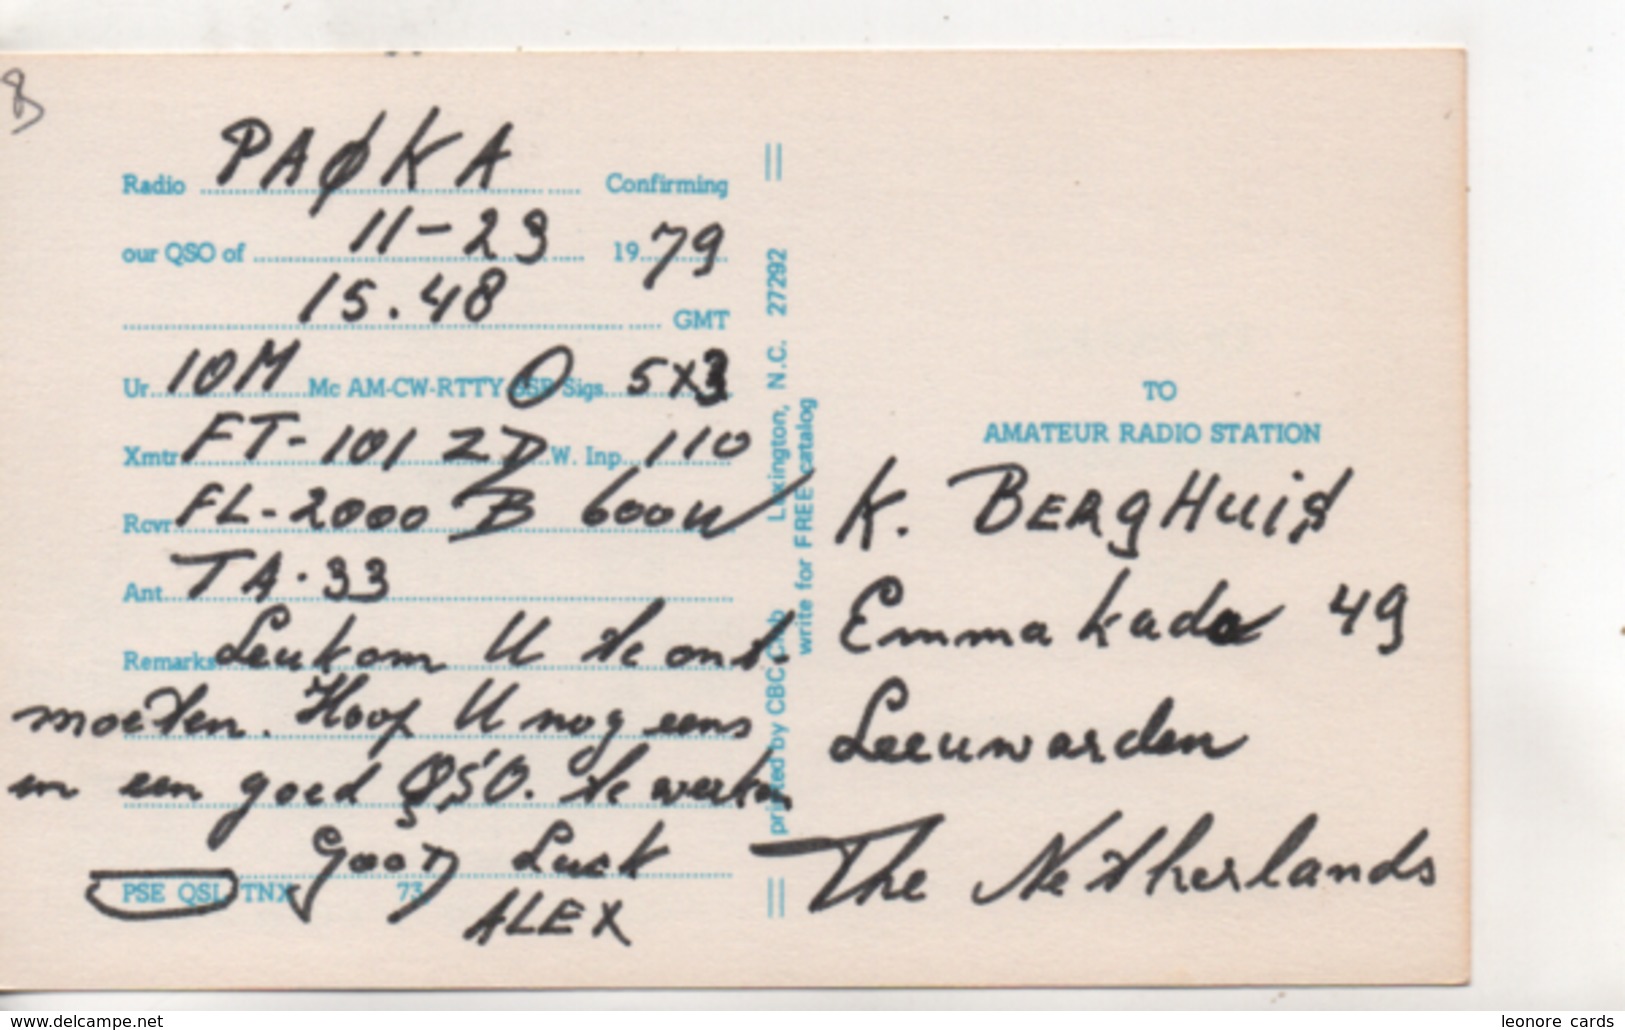 8
Radio PAØKA Confirming
our QSO of 11-23 1979
15.48 GMT
Ur 10M Mc AM-CW-RTTY SSB Sigs. 5x3
Xmtr FT-101 ZD W. Inp. 110
Rcvr FL-2000 B 600W
Ant. TA-33
Remarks Leukom U te ont.
moeten. Hoop U nog eens
in een goed QSO. te werken
Good Luck
PSE QSL TNX 73,
ALEX
printed by CBC Club Lexington, N.C. 27292
write for FREE catalog
TO
AMATEUR RADIO STATION
K. BERGHuis
Emmakade 49
Leeuwarden
The Netherlands
www.delcampe.net
leonore cards